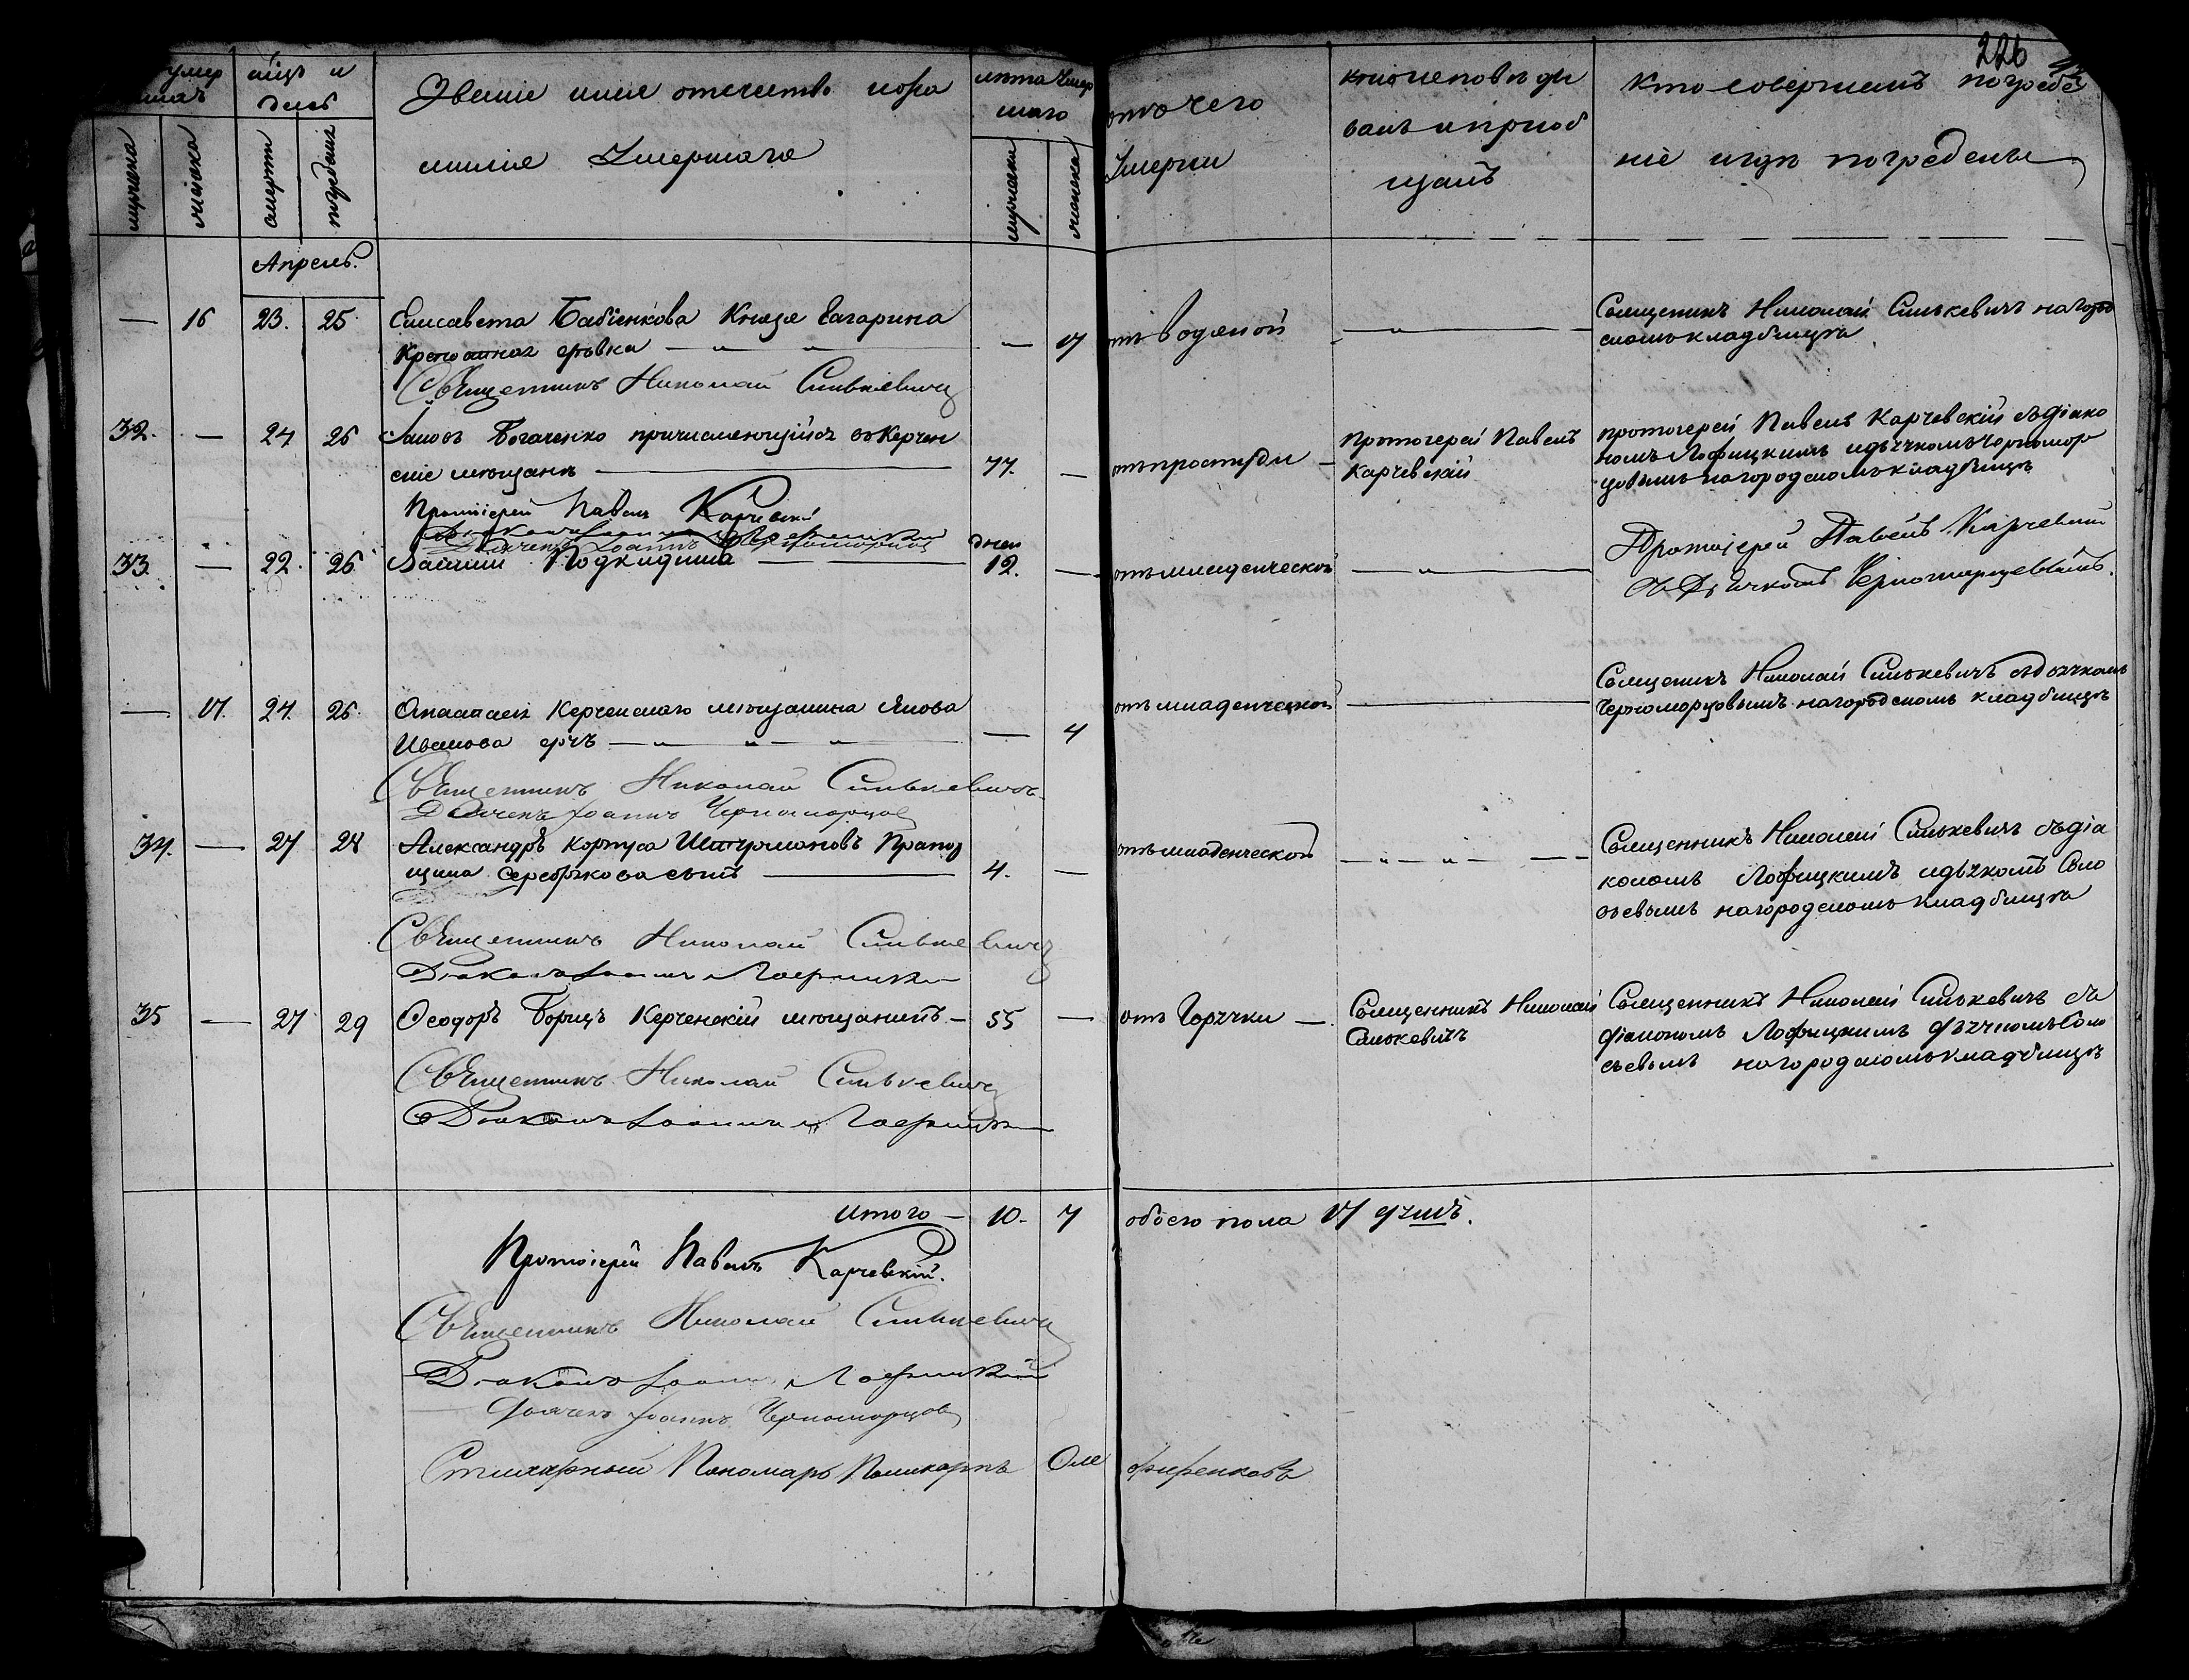 226
умер
мѣсяцъ и
день
Званіе имя отечество и фа
милія Умершаго
лѣта Умер
шаго
мужеска
женска
смерти
погребенія
мужеска
женска
отъ чего
Умерли
кто исповѣды
валъ и пріоб
щалъ
кто совершалъ погребе
ніе и гдѣ погребены
Апрель.
— 16 23. 25 Елисавета Бабіенкова Князя Гагарина
крепостная дѣвка — „ — „ — — 17 отъ водяной — „ — Священникъ Николай Синькевичъ на город
скомъ кладбищѣ
Священникъ Николай Синькевичъ
32. — 24 26 Іаковъ Богаченко причисляющійся въ Керчен
скіе мѣщане — 77. — отъ простуды — Протоіерей Павелъ
Карчевскій
протоіерей Павелъ Карчевскій съ діако
номъ Лофицкимъ и дьячкомъ Черномор
цовымъ на городскомъ кладбищѣ
Протоіерей Павелъ Карчевскій
Діаконъ Іоаннъ Лофицкій
Дьячекъ Іоаннъ Черноморцов
33. — 22. 26 Подкидыша — дней
12. — отъ младенческой — „ — Протоіерей Павелъ Карчевскій
съ Дьячкомъ Черноморцевымъ.
— 17. 24. 26. Анастасія Керченскаго мѣщанина Якова
Иванова дочь — „ — „ — „ — — 4 отъ младенческой — Священникъ Николай Синькевичъ съ дьячкомъ
Черноморцовымъ на городскомъ кладбищѣ
Священникъ Николай Синькевичъ
Дьячекъ Іоаннъ Черноморцов
34. — 27 28 Александръ Корпуса Штурмановъ Прапор
щика Серебрякова сынъ — 4. — отъ младенческой — „ — „ — — Священникъ Николай Синькевичъ съ діа
кономъ Лофицкимъ и дьячкомъ Соло
вьевымъ на городскомъ кладбищѣ
Священникъ Николай Синькевичъ
Діаконъ Іоаннъ Лофицкій
35 — 27 29 Ѳеодоръ Борицъ Керченскій мѣщанинъ — 55 — отъ Горячки — Священникъ Николай
Синькевичъ
Священникъ Николай Синькевичъ съ
діакономъ Лофицкимъ дьячкомъ Соло
вьевымъ на городскомъ кладбищѣ
Священникъ Николай Синькевичъ
Діаконъ Іоаннъ Лофицкій
Итого — 10. 7 обоего пола 17 душъ.
Протоіерей Павелъ Карчевскій.
Священникъ Николай Синькевичъ
Діаконъ Іоаннъ Лофицкій
Дьячекъ Іоаннъ Черноморцов
Стихарный Пономарь Поликарпъ Оле ференковъ